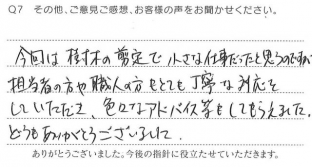 Q7 その他、ご意見ご感想、お客様の声をお聞かせください。
今回は樹木の剪定で小さな仕事だったと思うのですが
担当者の方や職人の方もとても丁寧な対応を
していただき、色々なアドバイス等もしてもらえました。
どうもありがとうございました。
ありがとうございました。今後の指針に役立たせていただきます。